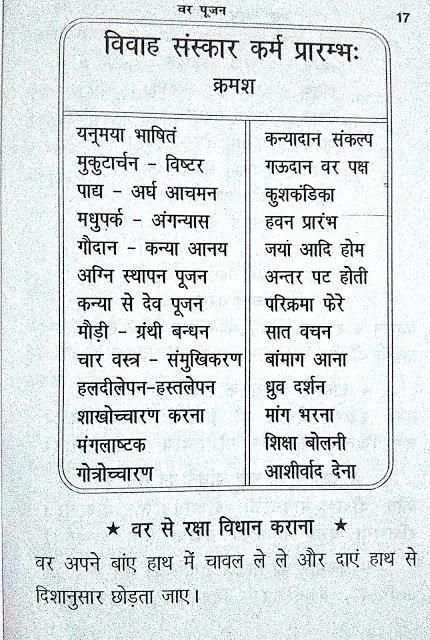 वर पूजन
17
विवाह संस्कार कर्म प्रारम्भः
क्रमश
यन्मया भाषितं
मुकुटार्चन – विष्टर
पाद्य – अर्घ आचमन
मधुपर्क – अंगन्यास
गौदान – कन्या आनय
अग्नि स्थापन पूजन
कन्या से देव पूजन
मौड़ी – ग्रंथी बन्धन
चार वस्त्र – संमुखिकरण
हलदीलेपन-हस्तलेपन
शाखोच्चारण करना
मंगलाष्टक
गोत्रोच्चारण
कन्यादान संकल्प
गऊदान वर पक्ष
कुशकंडिका
हवन प्रारंभ
जयां आदि होम
अन्तर पट होती
परिक्रमा फेरे
सात वचन
बांमाग आना
ध्रुव दर्शन
मांग भरना
शिक्षा बोलनी
आशीर्वाद देना
★ वर से रक्षा विधान कराना ★
वर अपने बांए हाथ में चावल ले ले और दाएं हाथ से
दिशानुसार छोड़ता जाए।